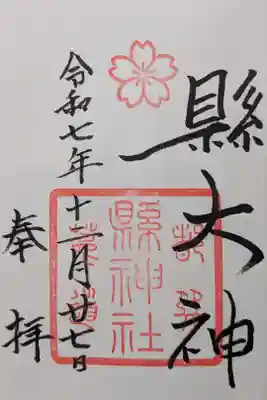 縣大神
縣神社
令和七年十二月廿七日
奉拝